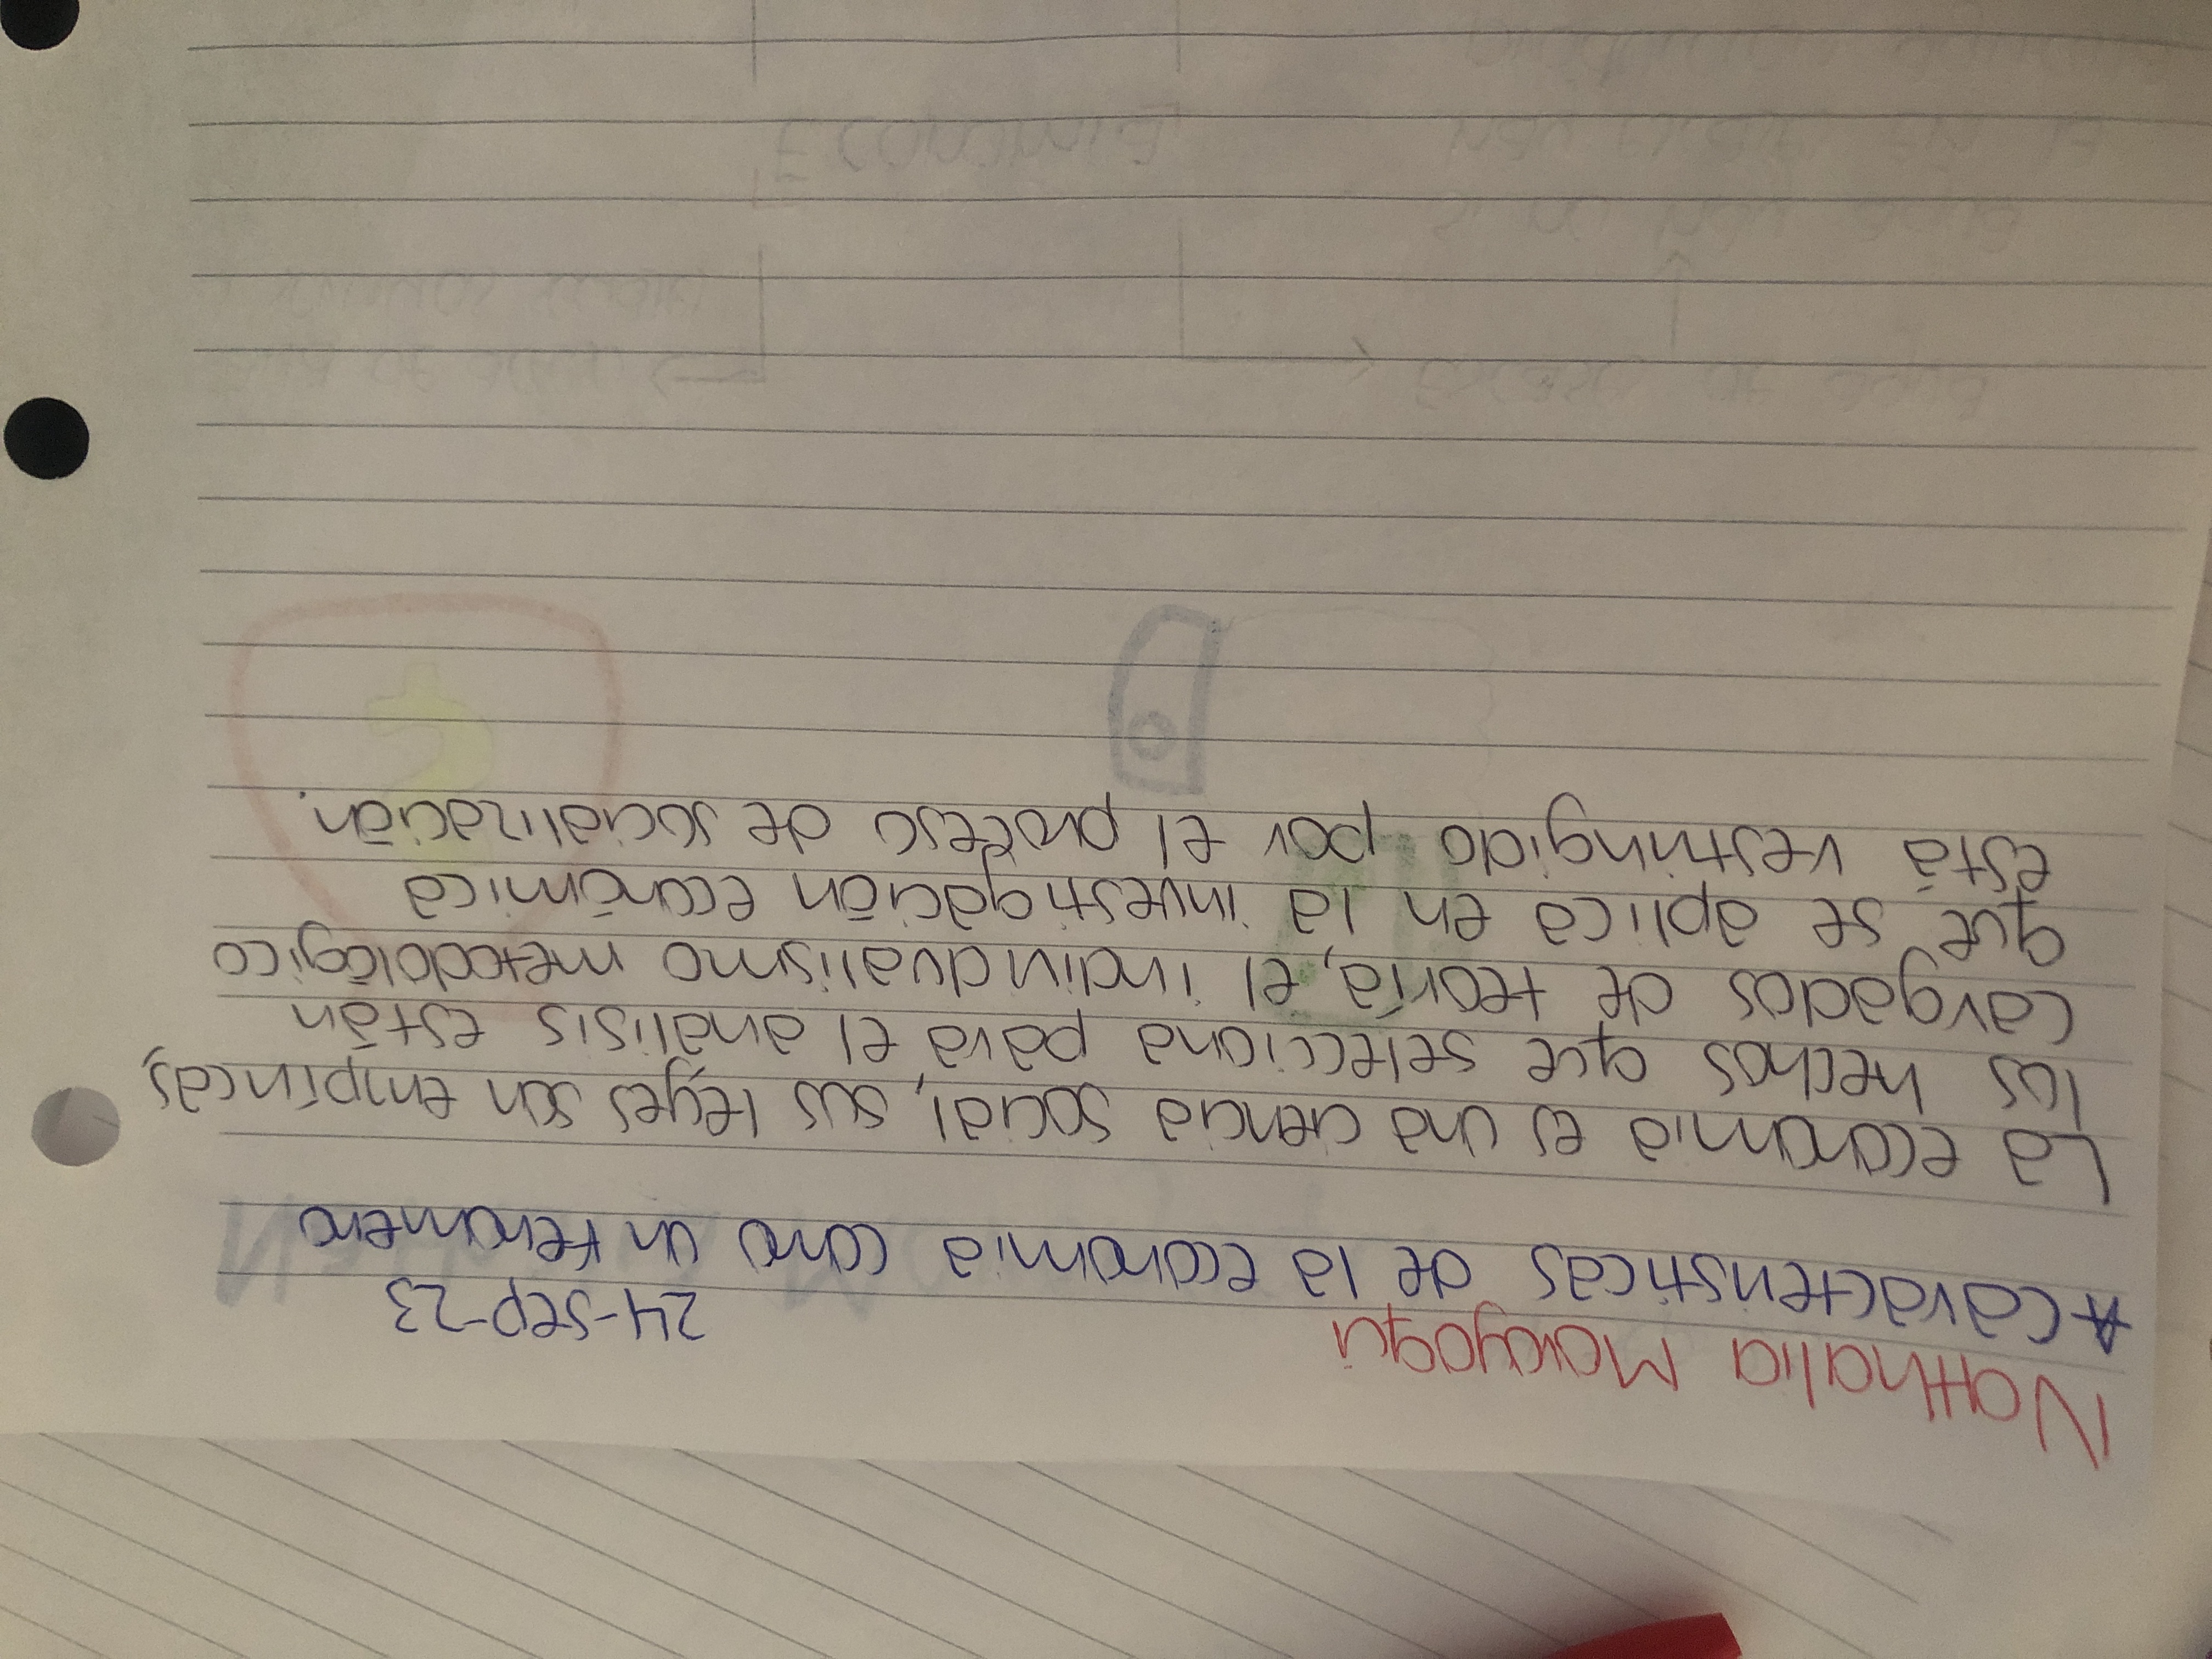 Nathalia Mayoqui
24-sep-23
*Características de la economía como un fenómeno
La economía es una ciencia social, sus leyes son empíricas,
los hechos que selecciona para el análisis están
cargados de teoría, el individualismo metodológico
que se aplica en la investigación económica
está restringido por el proceso de socialización.
Escases de agua
Si no hay agua
Economía